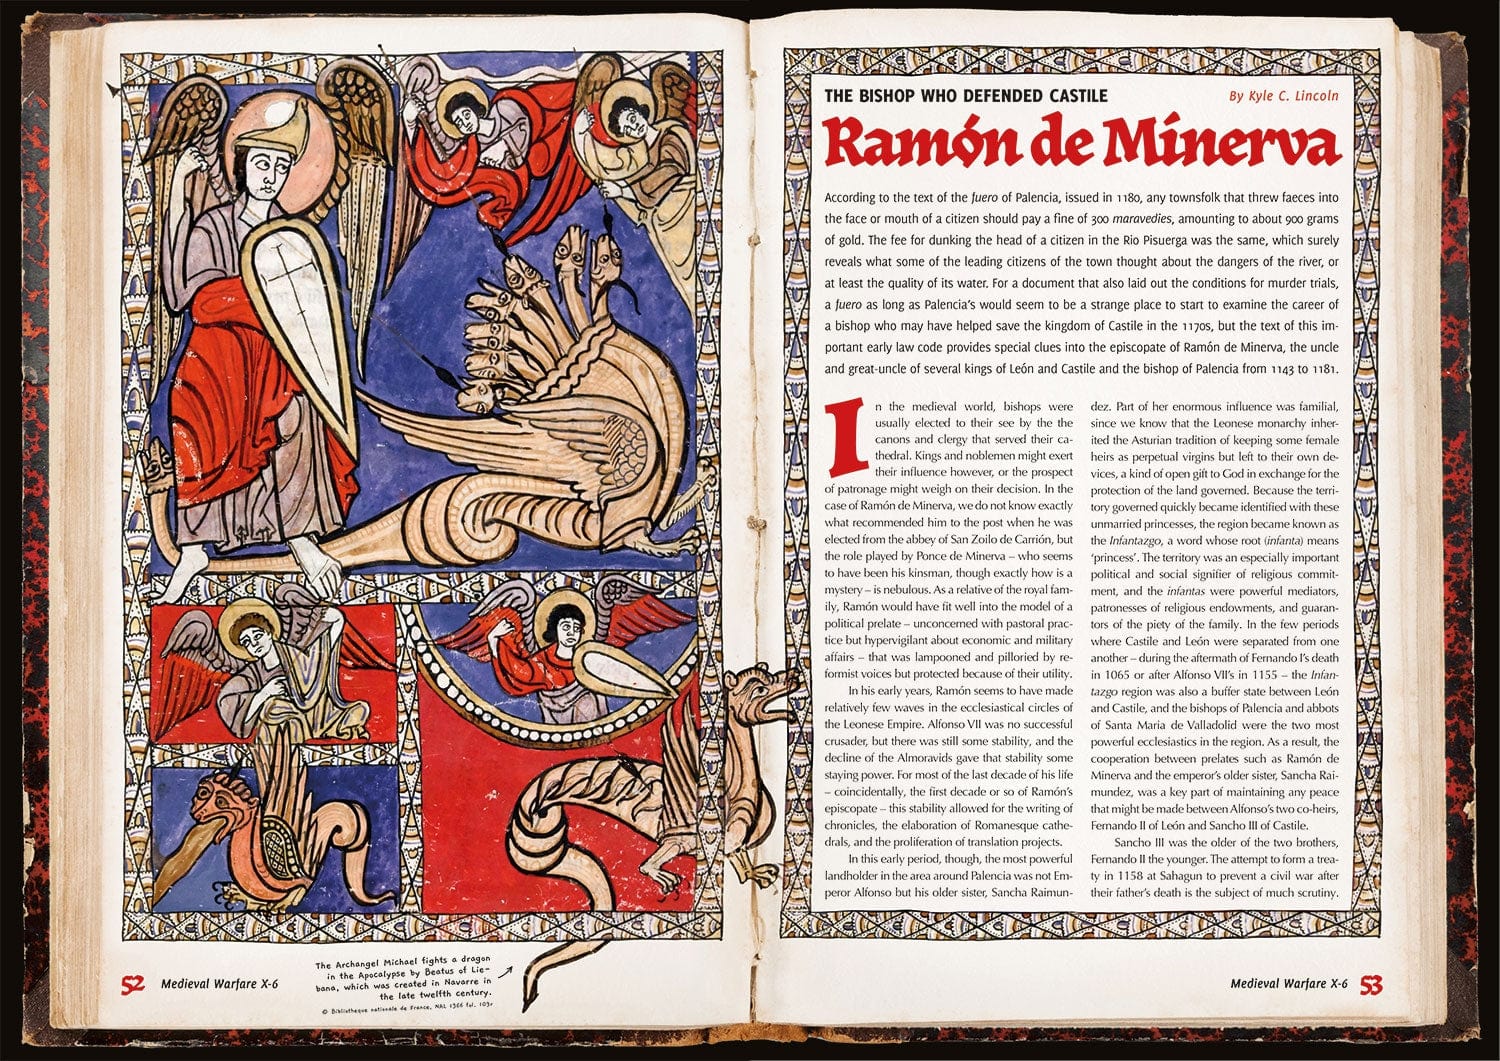 The Archangel Michael fights a dragon
in the Apocalypse by Beatus of Lie-
bana, which was created in Navarre in
the late twelfth century.
© Bibliothèque nationale de France, NAL 1366 fol. 103r
52 Medieval Warfare X-6
THE BISHOP WHO DEFENDED CASTILE
By Kyle C. Lincoln
Ramón de Minerva
According to the text of the fuero of Palencia, issued in 1180, any townsfolk that threw faeces into
the face or mouth of a citizen should pay a fine of 300 maravedies, amounting to about 900 grams
of gold. The fee for dunking the head of a citizen in the Rio Pisuerga was the same, which surely
reveals what some of the leading citizens of the town thought about the dangers of the river, or
at least the quality of its water. For a document that also laid out the conditions for murder trials,
a fuero as long as Palencia's would seem to be a strange place to start to examine the career of
a bishop who may have helped save the kingdom of Castile in the 1170s, but the text of this im-
portant early law code provides special clues into the episcopate of Ramón de Minerva, the uncle
and great-uncle of several kings of León and Castile and the bishop of Palencia from 1143 to 1181.
In the medieval world, bishops were
usually elected to their see by the the
canons and clergy that served their ca-
thedral. Kings and noblemen might exert
their influence however, or the prospect
of patronage might weigh on their decision. In the
case of Ramón de Minerva, we do not know exactly
what recommended him to the post when he was
elected from the abbey of San Zoilo de Carrión, but
the role played by Ponce de Minerva – who seems
to have been his kinsman, though exactly how is a
mystery – is nebulous. As a relative of the royal fam-
ily, Ramón would have fit well into the model of a
political prelate – unconcerned with pastoral prac-
tice but hypervigilant about economic and military
affairs – that was lampooned and pilloried by re-
formist voices but protected because of their utility.
In his early years, Ramón seems to have made
relatively few waves in the ecclesiastical circles of
the Leonese Empire. Alfonso VII was no successful
crusader, but there was still some stability, and the
decline of the Almoravids gave that stability some
staying power. For most of the last decade of his life
– coincidentally, the first decade or so of Ramón's
episcopate – this stability allowed for the writing of
chronicles, the elaboration of Romanesque cathe-
drals, and the proliferation of translation projects.
In this early period, though, the most powerful
landholder in the area around Palencia was not Em-
peror Alfonso but his older sister, Sancha Raimun-
dez. Part of her enormous influence was familial,
since we know that the Leonese monarchy inher-
ited the Asturian tradition of keeping some female
heirs as perpetual virgins but left to their own de-
vices, a kind of open gift to God in exchange for the
protection of the land governed. Because the terri-
tory governed quickly became identified with these
unmarried princesses, the region became known as
the Infantazgo, a word whose root (infanta) means
'princess'. The territory was an especially important
political and social signifier of religious commit-
ment, and the infantas were powerful mediators,
patronesses of religious endowments, and guaran-
tors of the piety of the family. In the few periods
where Castile and León were separated from one
another – during the aftermath of Fernando I's death
in 1065 or after Alfonso VII's in 1155 – the Infan-
tazgo region was also a buffer state between León
and Castile, and the bishops of Palencia and abbots
of Santa Maria de Valladolid were the two most
powerful ecclesiastics in the region. As a result, the
cooperation between prelates such as Ramón de
Minerva and the emperor's older sister, Sancha Rai-
mundez, was a key part of maintaining any peace
that might be made between Alfonso's two co-heirs,
Fernando II of León and Sancho III of Castile.
Sancho III was the older of the two brothers,
Fernando II the younger. The attempt to form a trea-
ty in 1158 at Sahagun to prevent a civil war after
their father's death is the subject of much scrutiny.
Medieval Warfare X-6 53